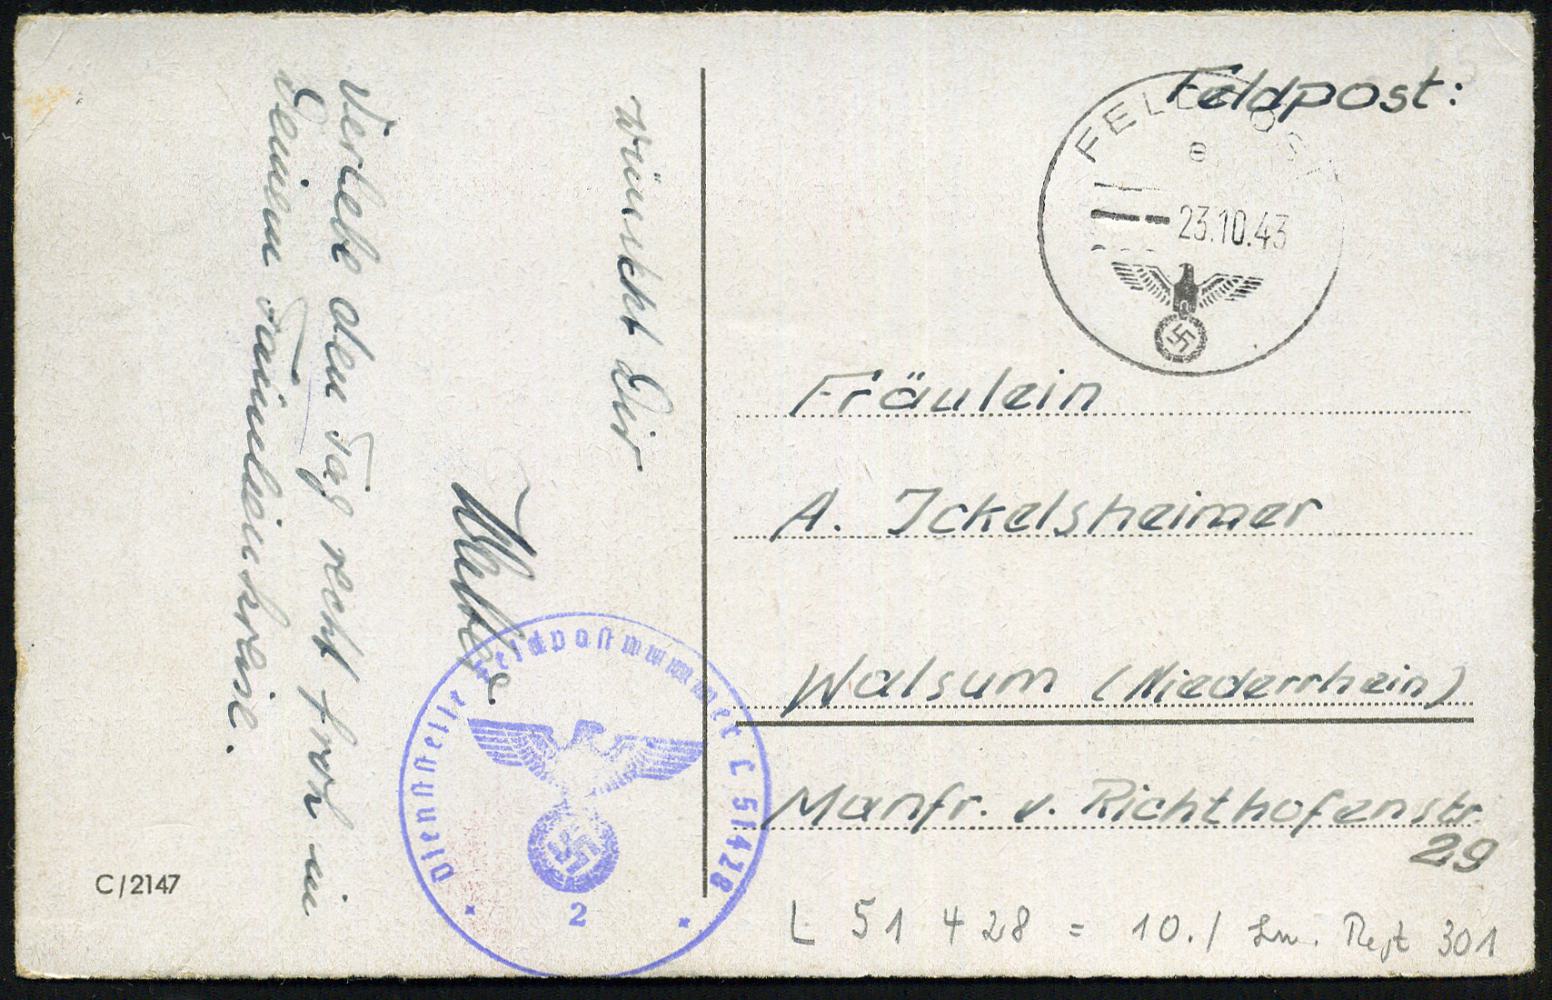 wünscht Dir
Verlebe den Tag recht froh im
Deinem Familienkreise.
C/2147
Dienststelle Feldpostnummer L 51428
2
Feldpost:
FELDPOST
e
23.10.43
Fräulein
A. Ickelsheimer
Walsum (Niederrhein)
Manfr. v. Richthofenstr.
29
L 51 428 = 10./ Ln. Regt 301